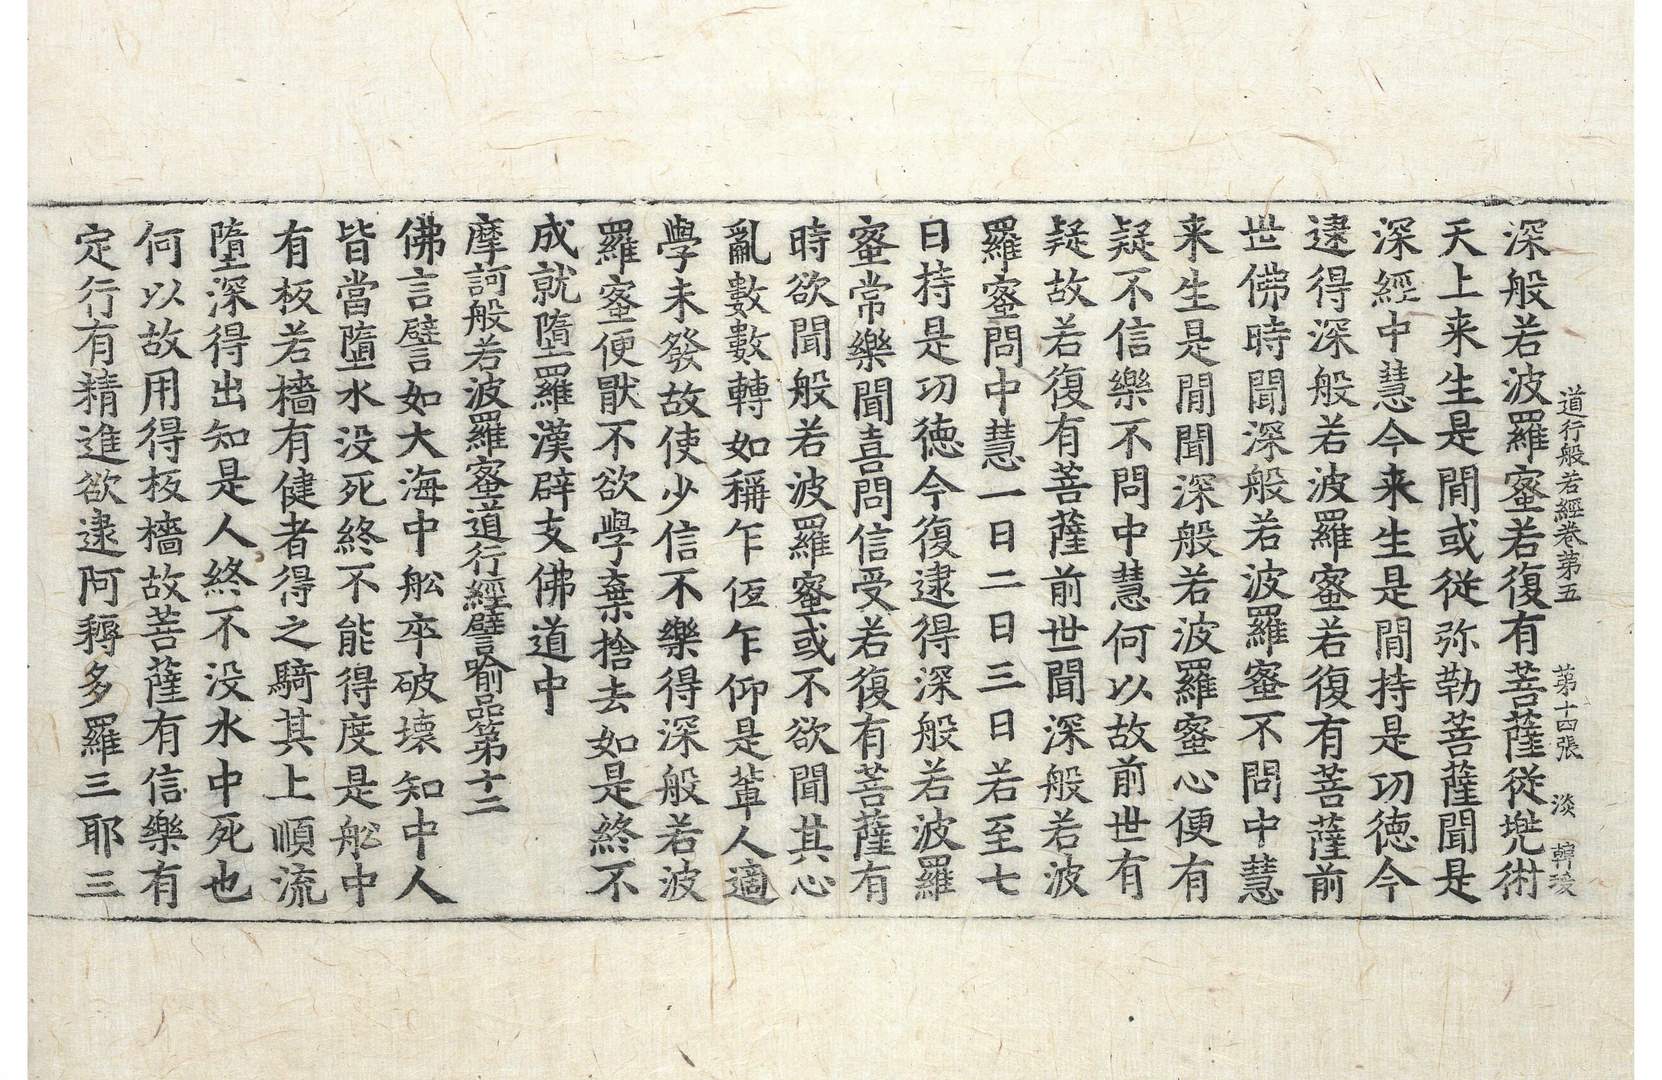 道行般若經卷第五 第十四張 淡 韓瑗
深般若波羅蜜若復有菩薩從兠術
天上来生是閒或從弥勒菩薩聞是
深經中慧今来生是閒持是功德今
逮得深般若波羅蜜若復有菩薩前
世佛時聞深般若波羅蜜不問中慧
来生是閒聞深般若波羅蜜心便有
疑不信樂不問中慧何以故前世有
疑故若復有菩薩前世聞深般若波
羅蜜問中慧一日二日三日若至七
日持是功德今復逮得深般若波羅
蜜常樂聞喜問信受若復有菩薩有
時欲聞般若波羅蜜或不欲聞其心
亂數數轉如稱乍佢乍仰是輩人適
學未發故使少信不樂得深般若波
羅蜜便猒不欲學棄捨去如是終不
成就墮羅漢辟支佛道中
摩訶般若波羅蜜道行經譬喻品第十二
佛言譬如大海中舩卒破壞知中人
皆當墮水没死終不能得度是舩中
有板若檣有健者得之騎其上順流
墮深得出知是人終不没水中死也
何以故用得板檣故菩薩有信樂有
定行有精進欲逮阿耨多羅三耶三